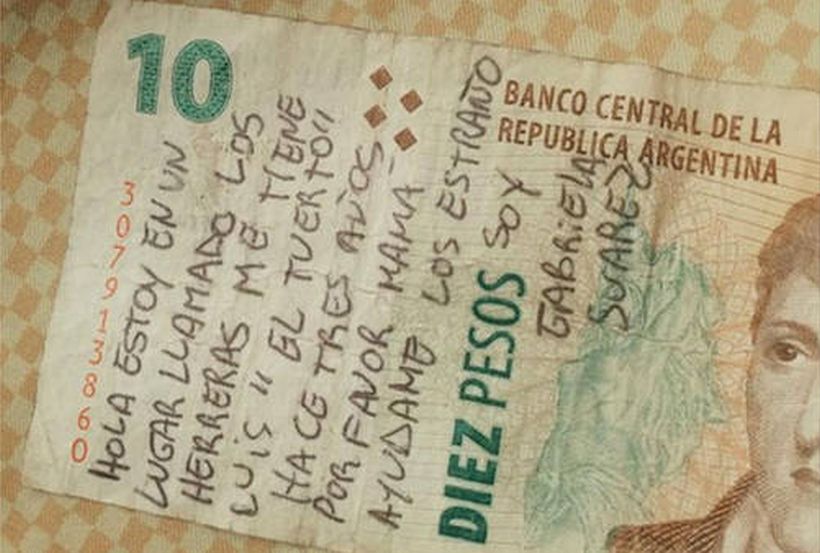 10
30791386 0
BANCO CENTRAL DE LA
REPUBLICA ARGENTINA
DIEZ PESOS
HOLA ESTOY EN UN
LUGAR LLAMADO LOS
HERRERAS ME TIENE
LUIS "EL TUERTO"
HACE TRES AÑOS
POR FAVOR MAMÁ
AYUDAME LOS ESTRAÑO
SOY
GABRiELA
SUAREZ